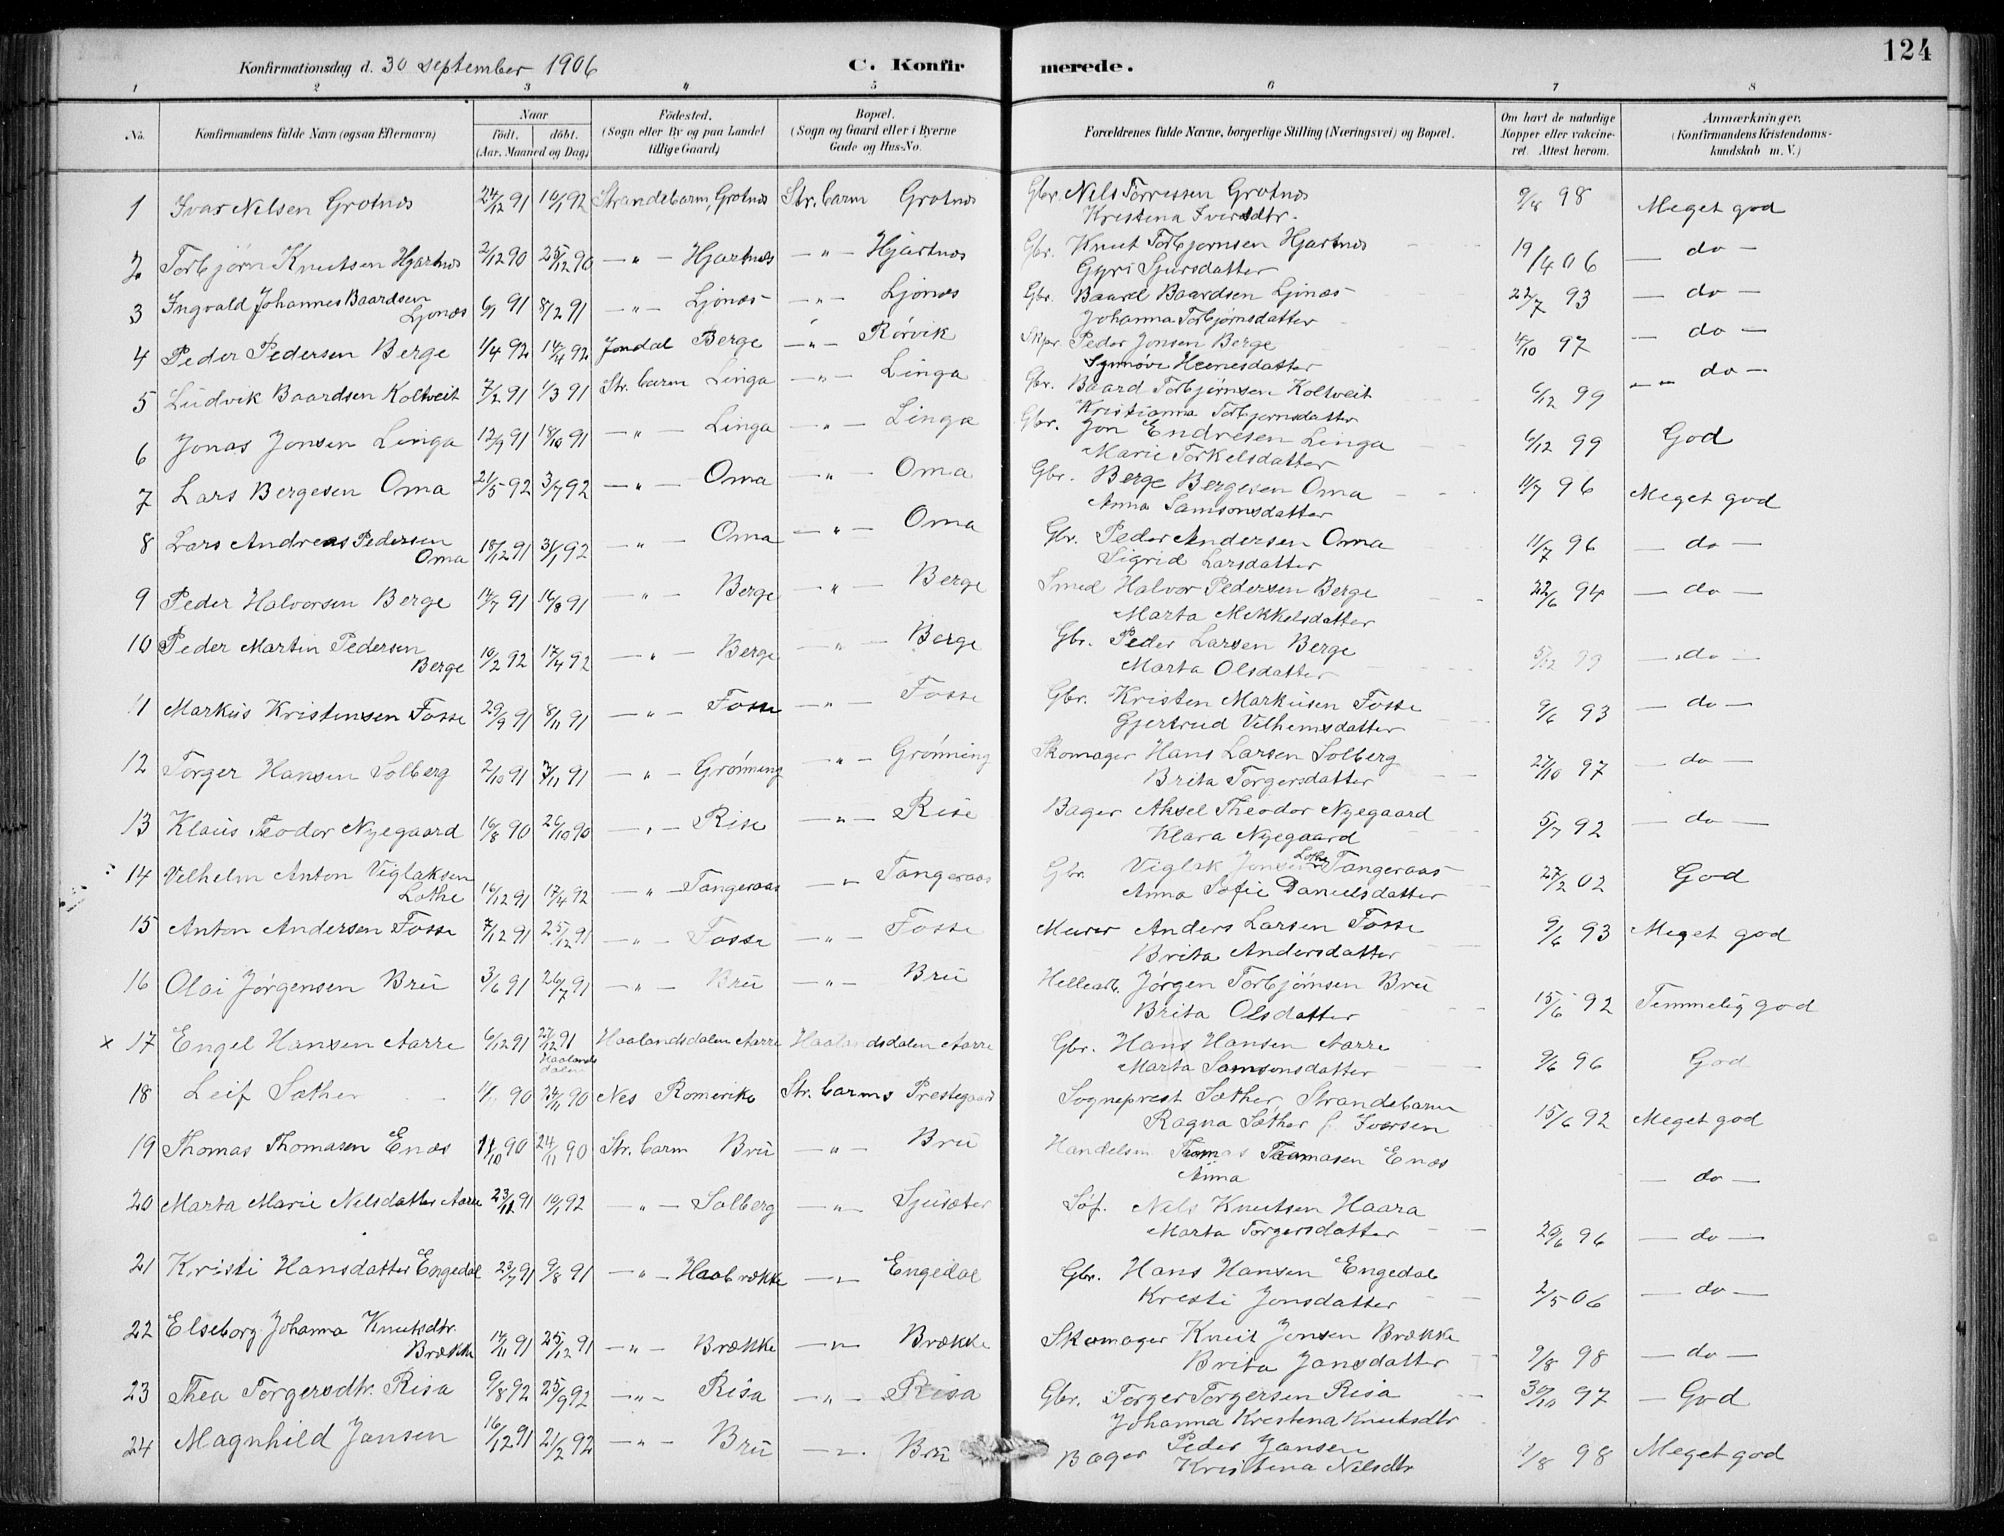 124
Konfirmationsdag d. 30 september 1906 C. Konfirmerede.
1 2 3 4 5 6 7 8
No. Konfirmandens fulde Navn (ogsaa Efternavn) Naar födt. döbt. (Aar, Maaned og Dag) Födested. (Sogn eller By og paa Landet tillige Gaard) Bopæl. (Sogn og Gaard eller i Byerne Gade og Hus-No. Forældrenes fulde Navne, borgerlige Stilling (Næringsvei) og Bopæl. Om havt de naturlige Kopper eller vakcineret. Attest herom. Anmærkninger. (Konfirmandens Kristendomskundskab m. V.)
1 Ivar Nelsen Grotnes 24/12 91 10/1 92 Strandebarm, Grotnes Str. barm Grotnes Gbr. Nels Torressen Grotnes 9/8 98 Meget god
Kristena Iversdtr.
2 Torbjørn Knutsen Hjartnes 2/12 90 25/12 90 — „ — Hjartnes — „ — Hjartnes Gbr. Knut Torbjørnsen Hjartnes 19/4 06 — do —
Gyri Sjursdatter
3 Ingvald Johannes Baardsen Ljones 6/1 91 8/2 91 — „ — Ljones — „ — Ljones Gbr. Baard Baardsen Ljones 22/7 93 — do —
Johanna Torbjørnsdatter
4 Peder Pedersen Berge 1/4 92 14/4 92 Jondal Berge — „ — Rørvik Skpr. Peder Jonsen Berge 4/10 97 — do —
Synnøve Heinesdatter
5 Ludvik Baardsen Koltveit 7/2 91 1/3 91 Str. barm Linga — „ — Linga Gbr. Baard Torbjørnsen Koltveit 6/12 99 — „ — do —
Kristianna Torbjørnsdatter
6 Jonas Jonsen Linga 12/9 91 18/10 91 — „ — Linga — „ — Linga Gbr. Jon Endresen Linga 6/12 99 God
Marie Torkelsdatter
7 Lars Bergesen Oma 21/5 92 3/7 92 — „ — Oma — „ — Oma Gbr. Berge Bergesen Oma 11/7 96 Meget god
Anna Samsonsdatter
8 Lars Andreas Pedersen Oma 18/12 91 31/1 92 — „ — Oma — „ — Oma Gbr. Peder Andersen Oma 11/7 96 — do —
Sigrid Larsdatter
9 Peder Halvorsen Berge 14/7 91 16/8 91 — „ — Berge — „ — Berge Smed Halvor Pedersen Berge 22/6 94 — do —
Marta Mekkelsdatter
10 Peder Martin Pedersen Berge 10/2 92 17/4 92 — „ — Berge — „ Berge Gbr. Peder Larsen Berge 5/12 99 — do —
Marta Olsdatter
11 Markus Kristensen Fosse 29/9 91 8/11 91 — „ — Fosse — „ — Fosse Gbr. Kristen Markusen Fosse 9/6 93 — do —
Gjertrud Vilhemsdatter
12 Torger Hansen Solberg 2/10 91 /11 91 — „ — Grønning — „ — Grønning Skomager Hans Larsen Solberg 27/10 97 — do —
Brita Torgersdatter
13 Klaus Teodor Nyegaard 16/8 90 26/10 90 — „ — Rise — „ — Rise Bager Aksel Theodor Nyegaard 5/7 92 — do —
Klara Nyegaard
14 Velhelm Anton Viglaksen Lothe 16/12 91 17/4 92 — „ — Tangeraas — „ Tangeraas Gbr. Viglak Jonsen Lothe Tangeraas 27/2 02 God
Anna Sofie Danielsdatter
15 Anton Andersen Fosse 7/12 91 25/12 91 — „ — Fosse — „ — Fosse Murer Anders Larsen Fosse 9/6 93 Meget god
Brita Andersdatter
16 Olai Jørgensen Bru 3/6 91 26/7 91 — „ — Bru — „ — Bru Hellearb. Jørgen Torbjørnsen Bru 15/6 92 Temmelig god
Brita Olsdatter
x 17 Engel Hansen Aarre 6/12 91 27/12 91 Haalandsdalen Haalandsdalen Aarre Haalandsdalen Aarre Gbr. Hans Hansen Aarre 9/6 96 God
Marta Samsonsdatter
18 Leif Sæther 90 24/11 90 Nes Romerike Str. barms Prestegaard Sogneprest Sæther, Strandebarm 15/6 92 Meget god
Ragna Sæther f. Iversen
19 Thomas Thomasen Enæs 11/10 90 24/11 90 Str. barm Bru — „ — Bru Handelsm Thomas Thomasen Enæs — do —
Anna
20 Marta Marie Nelsdatter Aarre 23/11 91 10/1 92 — „ — Solberg — „ — Sjusæter Søf. Nels Knutsen Haara 20/6 96 — do —
Marta Torgersdatter
21 Kristi Hansdatter Engedal 23/7 91 9/8 91 — „ — Haabrække — „ — Engedal Gbr. Hans Hansen Engedal 2/5 06 — do —
Kresti Jonsdatter
22 Elseborg Johanna Knutsdtr. Brække 14/11 91 25/12 91 — „ — Brække — „ — Brække Skomager Knut Jonsen Brække 9/8 98 — do —
Brita Jansdatter
23 Thea Torgersdtr. Risa 9/8 92 25/9 92 — „ — Risa — „ — Risa Gbr. Torger Torgersen Risa 30/10 97 — God
Johanna Krestena Knutsdtr
24 Magnhild Jansen 16/12 91 21/2 92 — „ — Bru — „ — Bru Bager Peder Jansen 9/8 98 Meget god
Kristena Nelsdtr